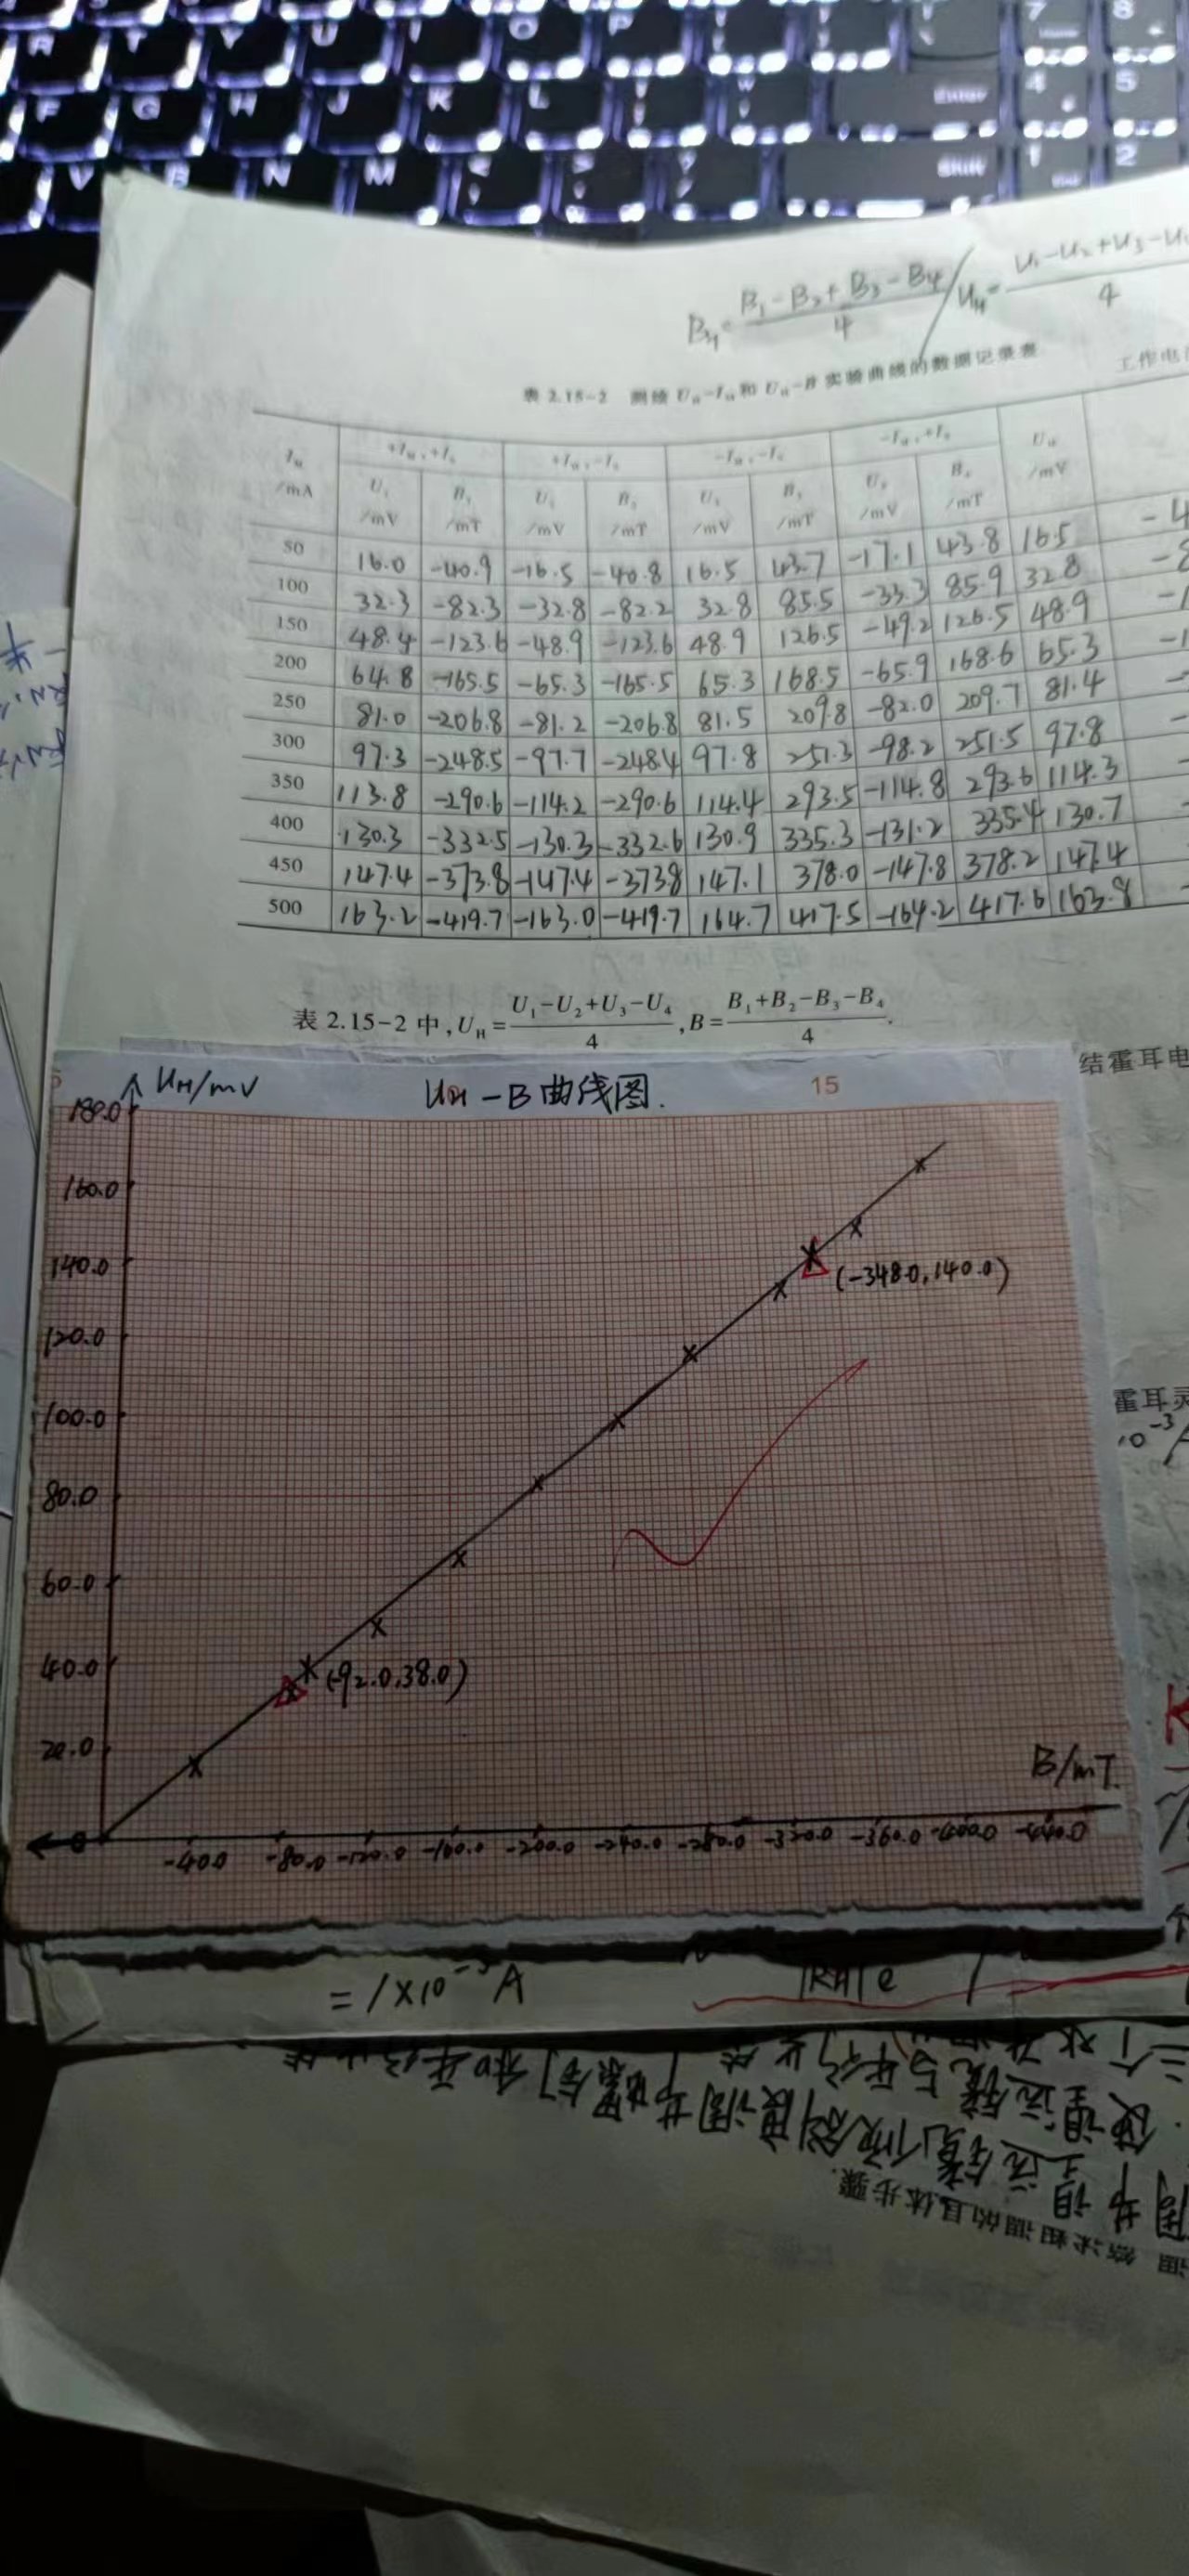 7 8
R T Y U I O P
4 5
F G H J K L Enter
1 2
V B N M Shift
B_H= (B₁-B₂+B₃-B₄)/4 / U_H= U₁-U₂+U₃-U₄/4
表 2.15-2 测绘 U_H-I_M 和 U_H-B 实验曲线的数据记录表 工作电
I_M /mA +I_H,+I_M +I_H,-I_M -I_H,-I_M -I_H,+I_M U_H /mV
U₁ /mV B₁ /mT U₂ /mV B₂ /mT U₃ /mV B₃ /mT U₄ /mV B₄ /mT
50 16.0 -40.9 -16.5 -40.8 16.5 43.7 -17.1 43.8 16.5 -4
100 32.3 -82.3 -32.8 -82.2 32.8 85.5 -33.3 85.9 32.8 -8
150 48.4 -123.6 -48.9 -123.6 48.9 126.5 -49.2 126.5 48.9 -1
200 64.8 -165.5 -65.3 -165.5 65.3 168.5 -65.9 168.6 65.3 -1
250 81.0 -206.8 -81.2 -206.8 81.5 209.8 -82.0 209.7 81.4 -
300 97.3 -248.5 -97.7 -248.4 97.8 251.3 -98.2 251.5 97.8 -
350 113.8 -290.6 -114.2 -290.6 114.4 293.5 -114.8 293.6 114.3 -
400 130.3 -332.5 -130.3 -332.6 130.9 335.3 -131.2 335.4 130.7
450 147.4 -373.8 -147.4 -373.8 147.1 378.0 -147.8 378.2 147.4
500 163.2 -419.7 -163.0 -419.7 164.7 417.5 -164.2 417.6 163.8 -
表 2.15-2 中,U_H=(U₁-U₂+U₃-U₄)/4,B=(B₁+B₂-B₃-B₄)/4.
结霍耳电
U_H/mV U_H-B 曲线图. 15
180.0
160.0
140.0 (-348.0,140.0)
120.0
100.0
霍耳灵
10⁻³/A
80.0
60.0
40.0 (-92.0,38.0)
20.0
B/mT.
0 -40.0 -80.0 -120.0 -160.0 -200.0 -240.0 -280.0 -320.0 -360.0 -400.0 -440.0
=1×10⁻³A |RH|e